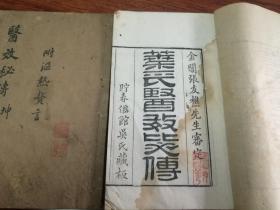 金閶張友樵先生審定
葉氏醫效秘傳
貯春僊館吳氏藏板
附溫熱贅言
醫效秘傳 坤